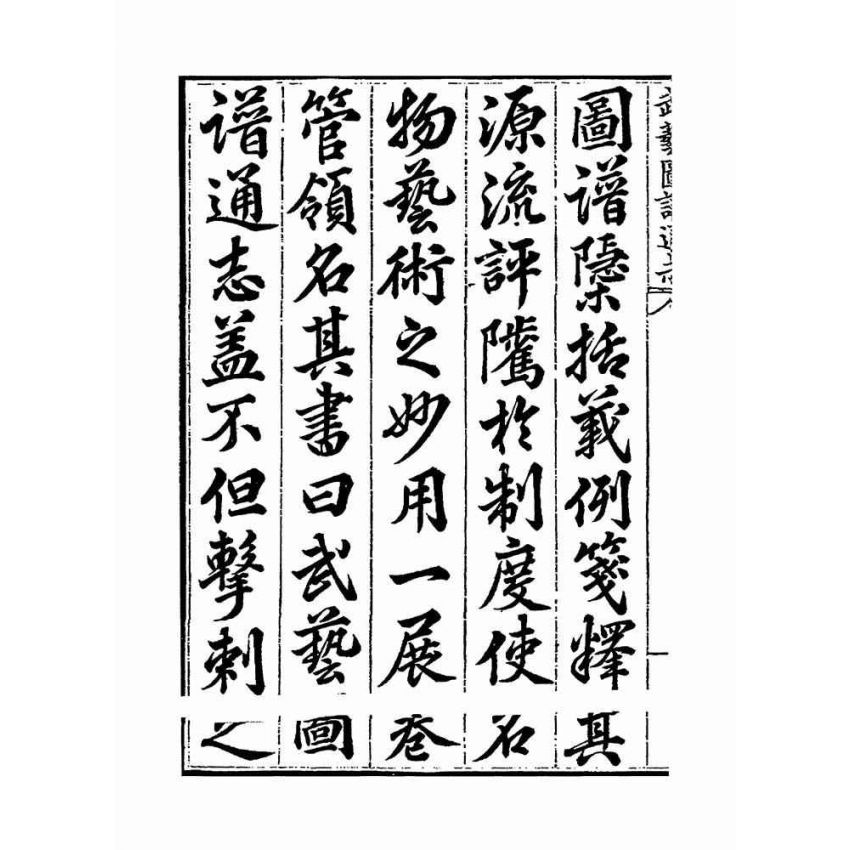 武藝圖譜通志
圖譜檃括義例箋釋其
源流評隲於制度使名
物藝術之妙用一展卷
管領名其書曰武藝圖
譜通志盖不但擊刺之